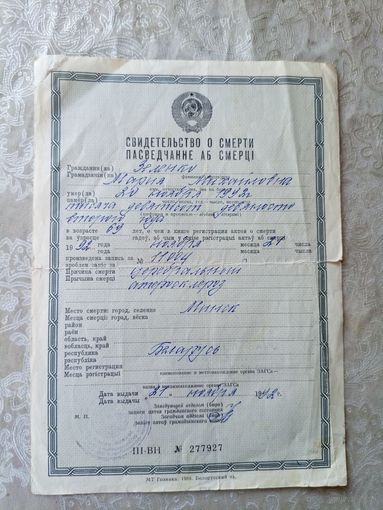 СВИДЕТЕЛЬСТВО О СМЕРТИ
ПАСВЕДЧАННЕ АБ СМЕРЦІ
Гражданин(ка) Зеленко
Грамадзянін(ка) Мария Михайловна
умер(ла) 20 ноября 1992г.
памёр(ла)
тысяча девятьсот девяносто
второго года
в возрасте 69 лет, о чем в книге регистрации актов о смерти
ва ўзросце гадоў, аб чым у кнізе рэгістрацыі актаў аб смерці
19 92 года ноября месяца 21 числа
года месяца числа
произведена запись за №
зроблен запіс за №
Причина смерти Церебральный
Прычына смерці атеросклероз
Место смерти: город, селение Минск
Месца смерці: горад, вёска
район
раён
область, край
вобласць, край
республика Беларусь
рэспубліка
Место регистрации
Месца рэгістрацыі
наименование и местонахождение органа ЗАГСа
Дата выдачи 21 ноября 1992 г.
Дата выдачы
Заведующий отделом (бюро)
записи актов гражданского состояния
Загадчык аддзела (бюро)
М. П.
III-ВН № 277927